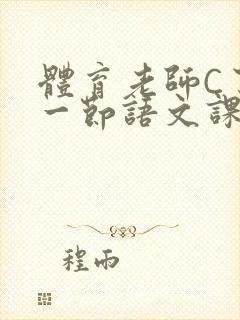 體育老師C
一節語文課
程雨